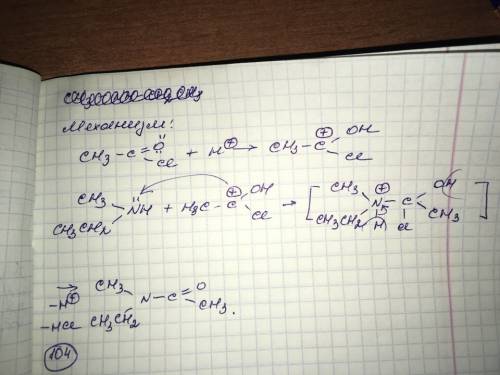 Механизм:
CH₃ - C = Ö Cl + H⊕ → CH₃ - C⊕ OH Cl
CH₃ CH₃CH₂ N̈H + H₃C - C⊕ OH Cl → [ CH₃ CH₃CH₂ N⊕ H - C OH CH₃ Cl ]
→ -H⊕ -HCl CH₃ CH₃CH₂ N - C = O CH₃.
104